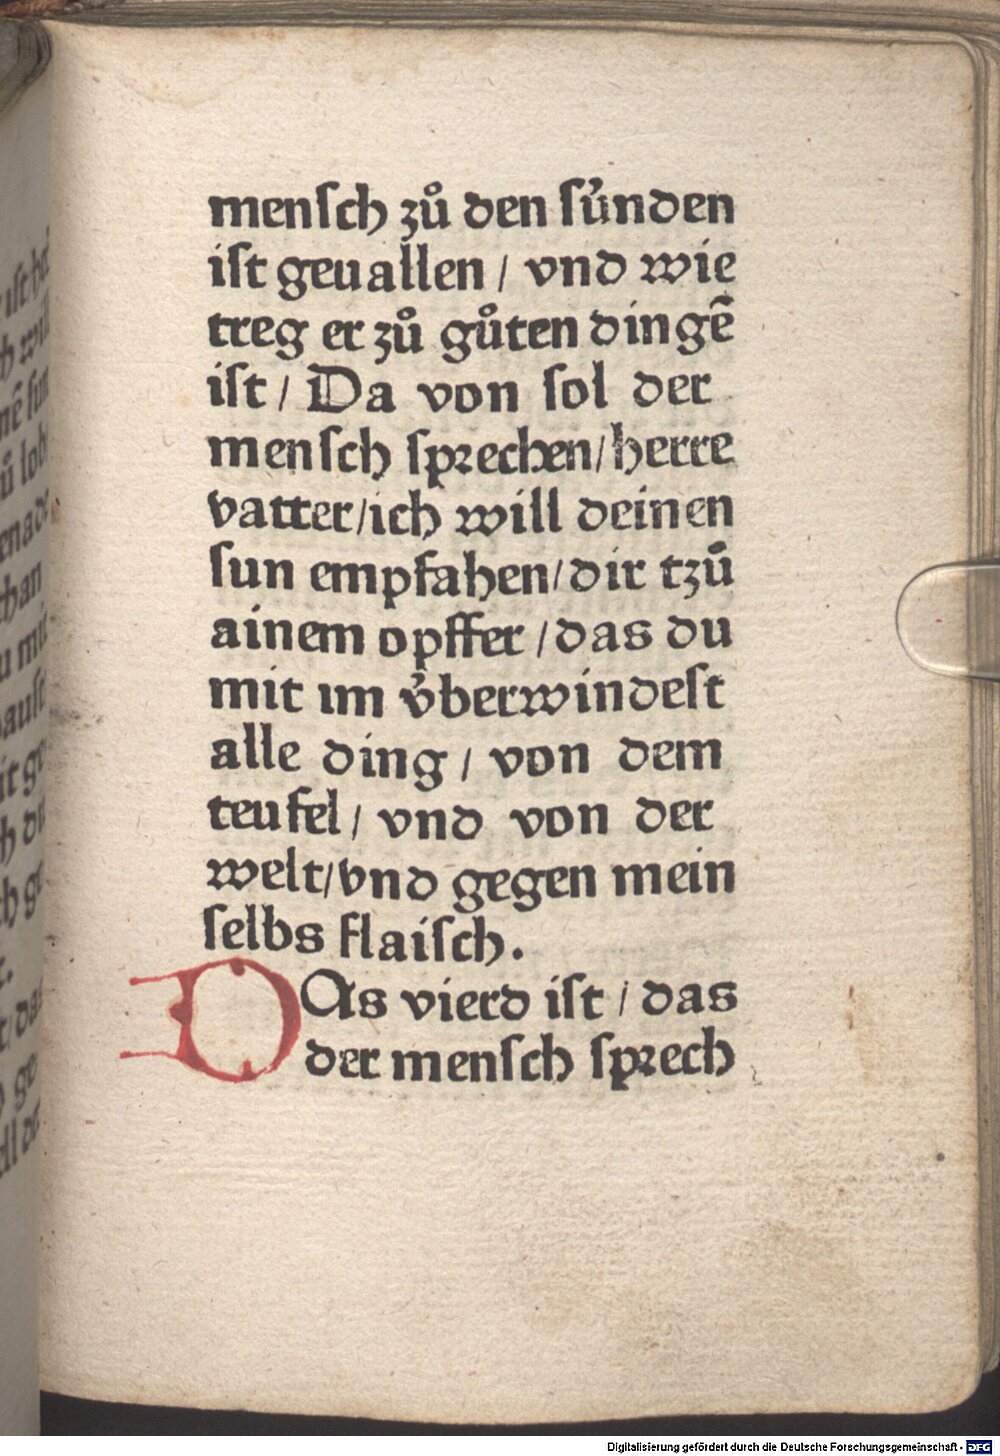 menſch zů den ſu̓nden
iſt geuallen / vnd wie
treg er zů gůten dingē
iſt / Da von sol der
menſch ſprechen / herre
vatter / ich will deinen
ſun empfahen / dir tzů
ainem opffer / das du
mit im v̓berwindeſt
alle ding / von dem
teufel / vnd von der
welt / vnd gegen mein
ſelbs flaiſch .
DAs vierd iſt / das
der menſch ſprech
Digitalisierung gefördert durch die Deutsche Forschungsgemeinschaft - DFG